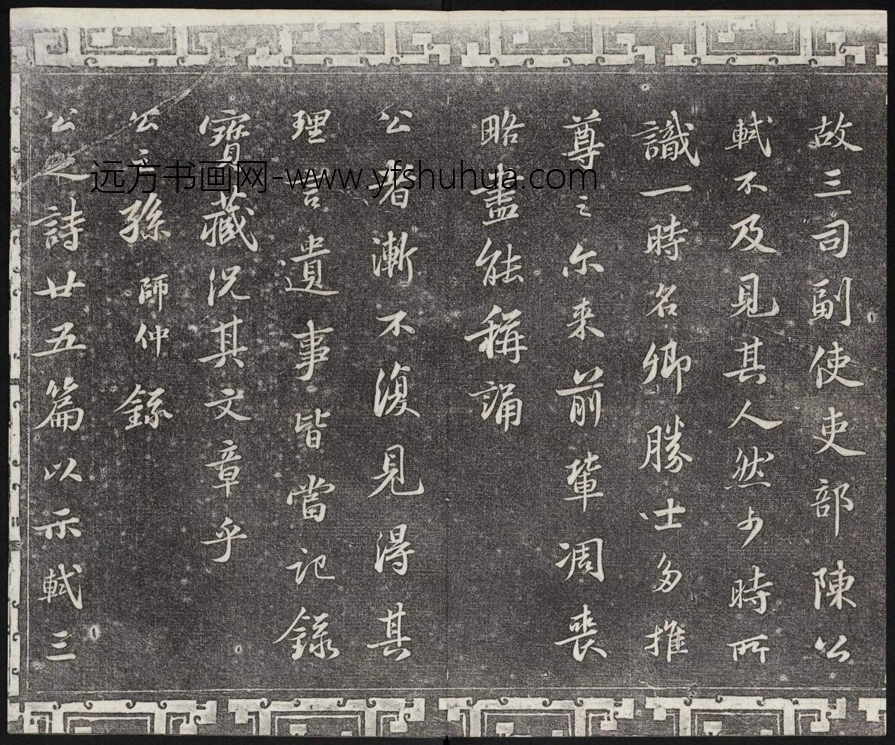 故三司副使吏部陳公
軾不及見其人然少時所
識一時名卿勝士多推
尊之尓来前輩凋喪
略盡能稱誦
公者漸不復見得其
理言遺事皆當記錄
寶藏況其文章乎
公之孫師仲錄
公之詩廿五篇以示軾三
远方书画网-www.yfshuhua.com